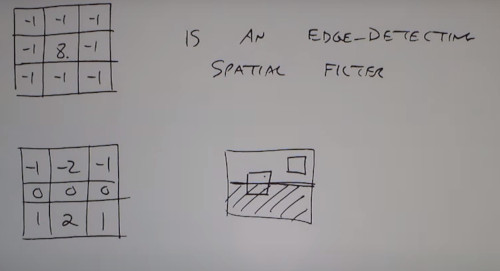 -1 -1 -1
-1 8. -1
-1 -1 -1
IS AN EDGE-DETECTING
SPATIAL FILTER
-1 -2 -1
0 0 0
1 2 1